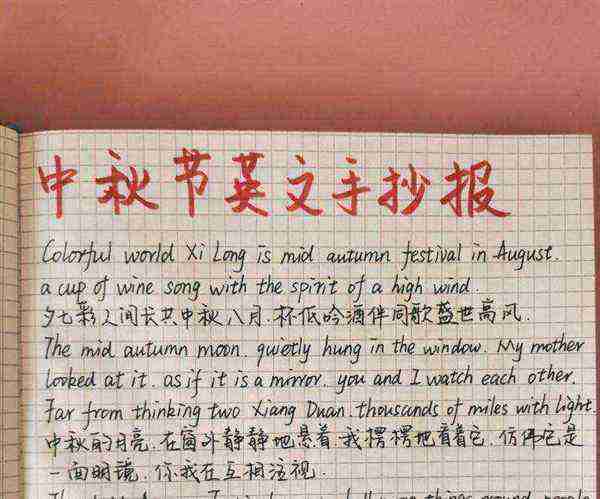 中秋节英文手抄报
Colorful world Xi Long is mid autumn festival in August.
a cup of wine song with the spirit of a high wind.
夕七彩人间长共中秋八月.杯低吟酒伴同歌盛世高风.
The mid autumn moon. quietly hung in the window. My mother
looked at it. as if it is a mirror. you and I watch each other.
Far from thinking two Xiang Duan. thousands of miles with light.
中秋的月亮.在窗外静静地悬着.我愣愣地看着它.仿佛它是
一面明镜.你我在互相注视.